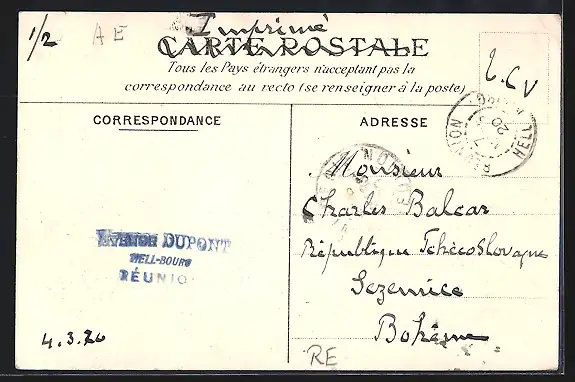 1/2
AE
Imprimé
CARTE POSTALE
Tous les Pays étrangers n'acceptant pas la
correspondance au recto (se renseigner à la poste)
CORRESPONDANCE
ADRESSE
RÉUNION
HELL
20
Monsieur
Charles Balcar
République Tchécoslovaque
Sezemice
Bohême
DUPONT
HELL-BOURG
RÉUNIO
4.3.20
RE